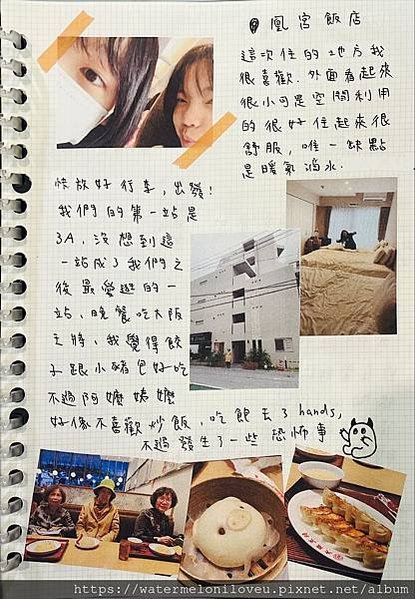 凰宮飯店
這次住的地方我
很喜歡.外面看起來
很小可是空間利用
的很好住起來很
舒服,唯一缺點
是暖氣滴水.
快放好行李,出發!
我們的第一站是
3A,沒想到這
一站成了我們之
後最愛逛的一
站,晚餐吃大阪
王將,我覺得餃
子跟小豬包好吃
不過阿嬤姨嬤
好像不喜歡炒飯,吃飽去了hands,
不過發生了一些恐怖事
https://watermeloniloveu.pixnet.net/album